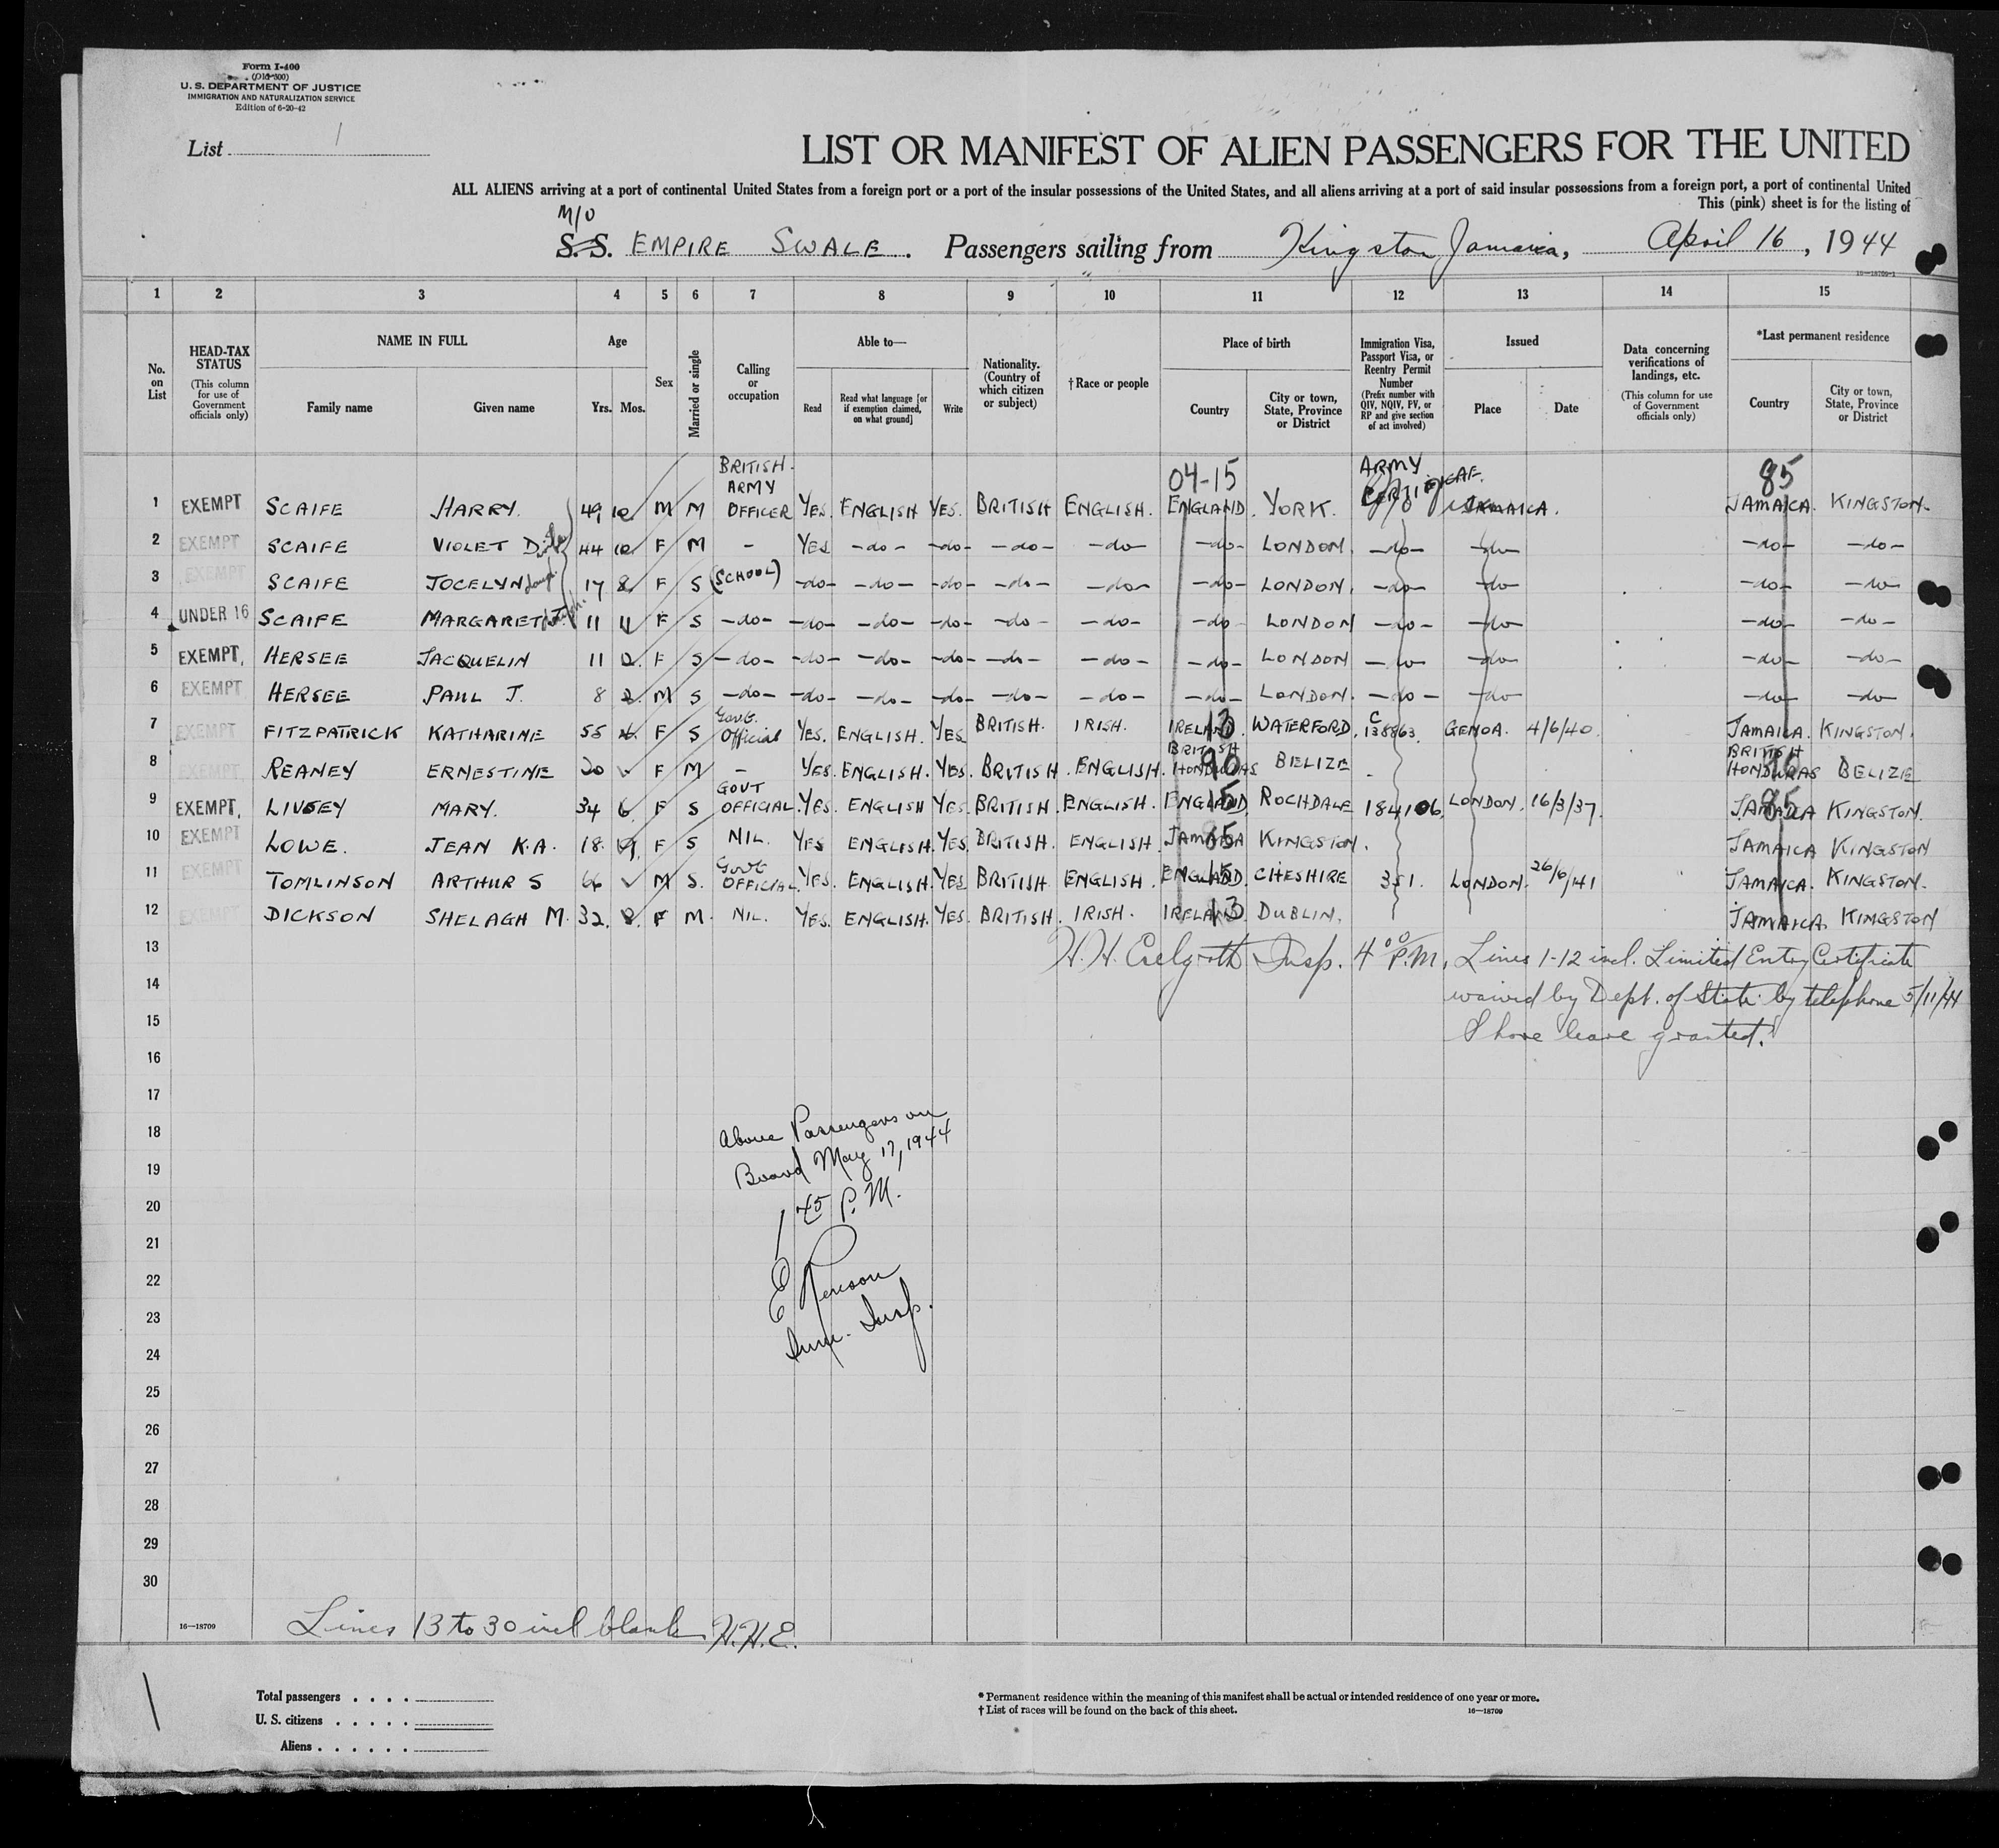 Form I-400
(Old 500)
U. S. DEPARTMENT OF JUSTICE
IMMIGRATION AND NATURALIZATION SERVICE
Edition of 6-20-42
List 1
LIST OR MANIFEST OF ALIEN PASSENGERS FOR THE UNITED
ALL ALIENS arriving at a port of continental United States from a foreign port or a port of the insular possessions of the United States, and all aliens arriving at a port of said insular possessions from a foreign port, a port of continental United
This (pink) sheet is for the listing of
M/V
S.S. EMPIRE SWALE. Passengers sailing from Kingston, Jamaica, April 16, 1944
16—18709-1
1 2 3 4 5 6 7 8 9 10 11 12 13 14 15
No. on List
HEAD-TAX STATUS (This column for use of Government officials only)
NAME IN FULL
Family name Given name
Age
Yrs. Mos.
Sex
Married or single
Calling or occupation
Able to—
Read Read what language [or if exemption claimed, on what ground] Write
Nationality. (Country of which citizen or subject)
†Race or people
Place of birth
Country City or town, State, Province or District
Immigration Visa, Passport Visa, or Reentry Permit Number (Prefix number with QIV, NQIV, PV, or RP and give section of act involved)
Issued
Place Date
Data concerning verifications of landings, etc. (This column for use of Government officials only)
*Last permanent residence
Country City or town, State, Province or District
04-15 85
1 EXEMPT SCAIFE HARRY. 49 M M BRITISH ARMY OFFICER YES. ENGLISH YES. BRITISH ENGLISH. ENGLAND. YORK. ARMY CERTIFICATE JAMAICA. JAMAICA. KINGSTON.
2 EXEMPT SCAIFE VIOLET D. wife 44 F M - YES -do- -do- -do- -do- -do- LONDON. -do- -do- -do- -do-
3 EXEMPT SCAIFE JOCELYN daugh. 17 8 F S (SCHOOL) -do- -do- -do- -do- -do- -do- LONDON. -do- -do- -do- -do-
4 UNDER 16 SCAIFE MARGARET J. 11 11 F S -do- -do- -do- -do- -do- -do- -do- LONDON -do- -do- -do- -do-
5 EXEMPT, HERSEE JACQUELIN 11 2. F S -do- -do- -do- -do- -do- -do- -do- LONDON -do- -do- -do- -do-
6 EXEMPT HERSEE PAUL J. 8 2. M S -do- -do- -do- -do- -do- -do- -do- LONDON. -do- -do- -do- -do-
7 EXEMPT FITZPATRICK KATHARINE 55 F S Govt. Official YES. ENGLISH. YES BRITISH. IRISH. IRELAND. 13 WATERFORD. C 138863. GENOA. 4/6/40. JAMAICA. KINGSTON.
8 EXEMPT REANEY ERNESTINE 20 F M - YES. ENGLISH. YES. BRITISH. ENGLISH. BRITISH HONDURAS 90 BELIZE BRITISH HONDURAS 90 BELIZE
9 EXEMPT, LIVSEY MARY. 34 6 F S GOVT OFFICIAL. YES. ENGLISH YES. BRITISH. ENGLISH. ENGLAND. 15 ROCHDALE 184106. LONDON. 16/3/37. JAMAICA 85 KINGSTON.
10 EXEMPT LOWE. JEAN K.A. 18. F S NIL. YES ENGLISH. YES. BRITISH. ENGLISH. JAMAICA 85 KINGSTON. JAMAICA KINGSTON
11 EXEMPT TOMLINSON ARTHUR S 66 M S. Govt OFFICIAL. YES. ENGLISH. YES. BRITISH. ENGLISH. ENGLAND. 15 CHESHIRE 351. LONDON. 26/6/41 JAMAICA. KINGSTON.
12 EXEMPT DICKSON SHELAGH M. 32. 8. F M. NIL. YES. ENGLISH. YES. BRITISH. IRISH. IRELAND. 13 DUBLIN. JAMAICA. KINGSTON
13 Insp. 4 00 P.M. Lines 1-12 incl. Limited Entry Certificate
14 waived by Dept. of State by telephone 5/11/44
15 Shore leave granted.
16
17
18 Above Passengers on
19 Board May 17, 1944
20 1 45 P.M.
21
22 E
23 Imm. Insp.
24
25
26
27
28
29
30
16—18709 Lines 13 to 30 incl blank H.H.E.
Total passengers . . . .
U. S. citizens . . . . .
Aliens . . . . . .
* Permanent residence within the meaning of this manifest shall be actual or intended residence of one year or more.
† List of races will be found on the back of this sheet. 16—18709